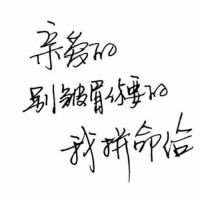 亲爱的
别皱眉 你要的
我拼命给